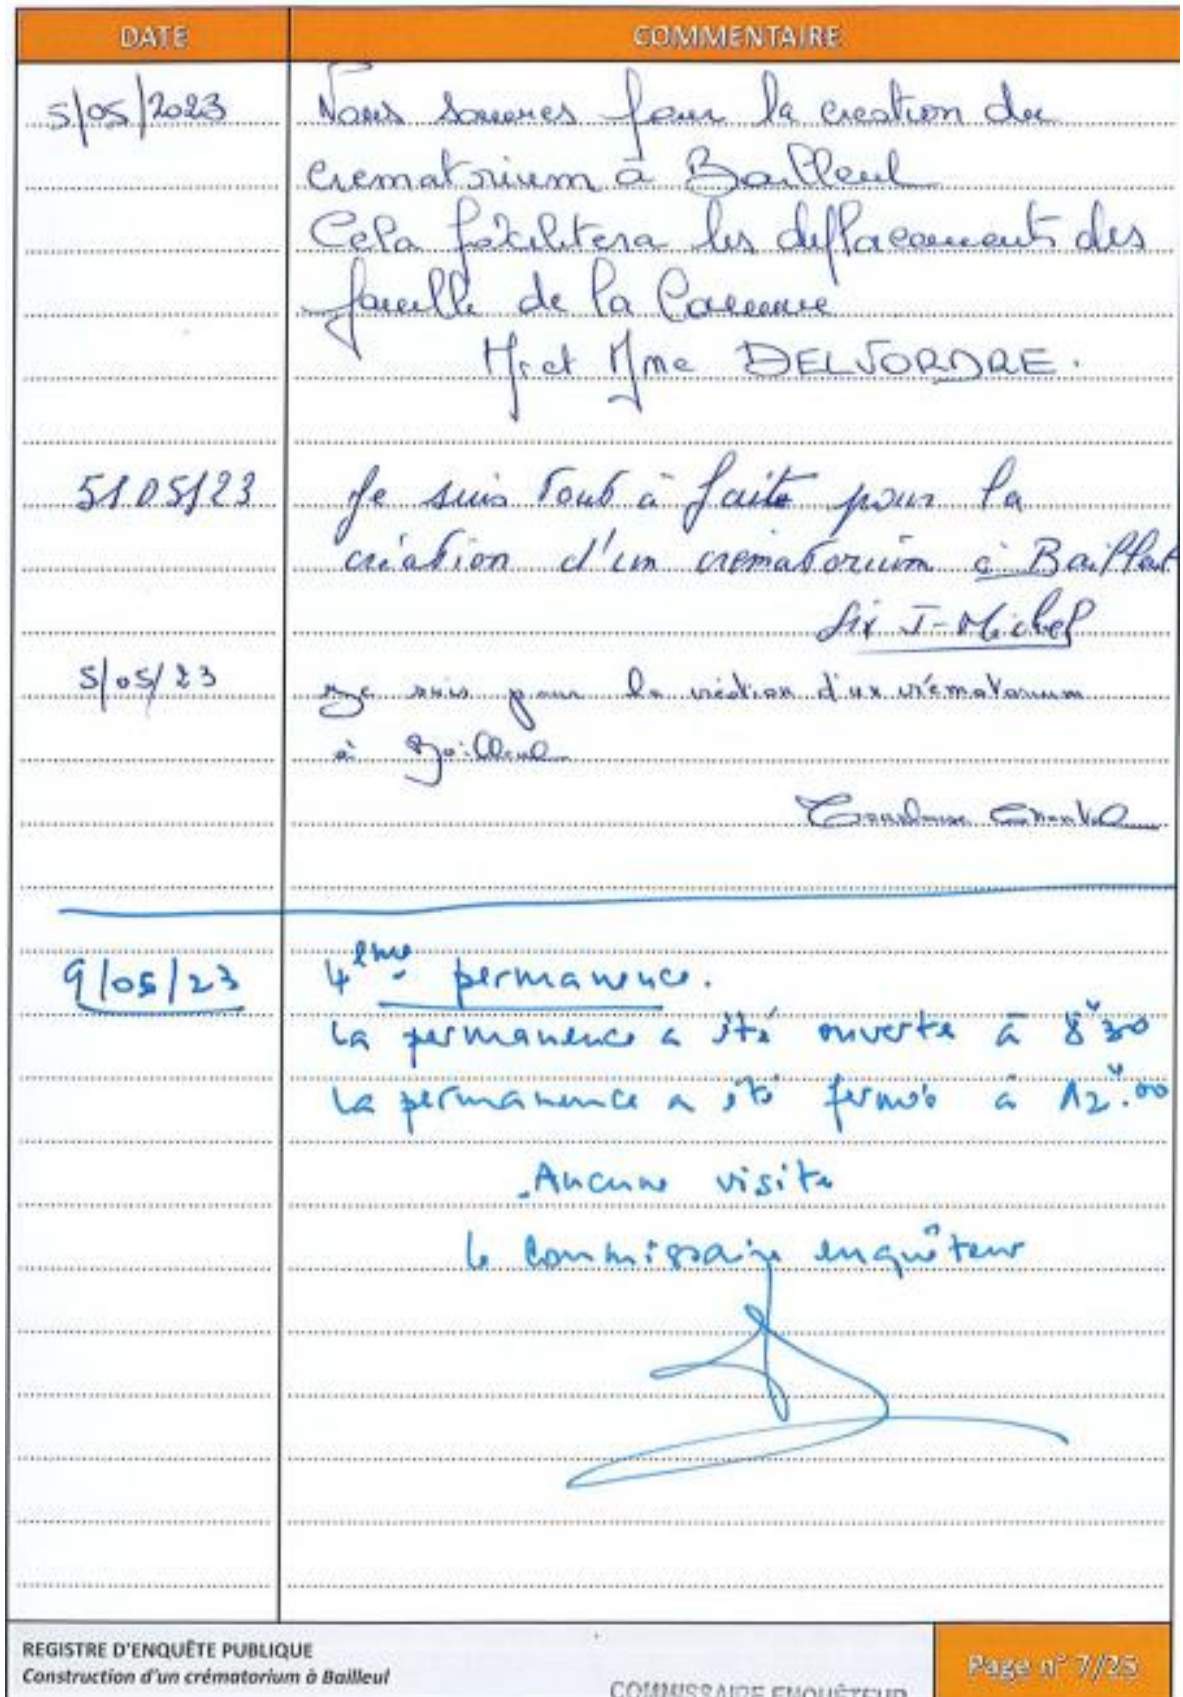 DATE COMMENTAIRE
5/05/2023 Nous sommes pour la creation du
crematorium à Bailleul
Cela facilitera les desplacements des
famille de la Commune
Mr et Mme DELVORDRE.
5/05/23 Je suis tout à faite pour la
création d'un crematorium à Bailleul
Six J-Michel
5/05/23 Je suis pour la création d'un crématorium
à Bailleul
9/05/23 4ème permanence.
La permanence a été ouverte à 8h30
La permanence a été fermée à 12h.00
Aucune visite
le commissaire enquêteur
REGISTRE D'ENQUÊTE PUBLIQUE
Construction d'un crématorium à Bailleul
COMMISSAIRE ENQUÊTEUR
Page n° 7/25